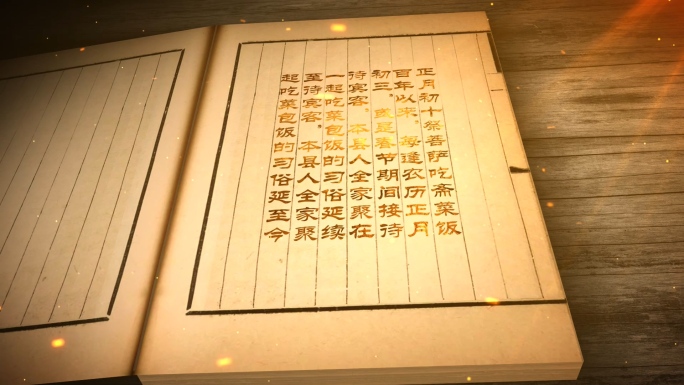 正月初十祭菩萨吃斋菜饭
百年以来。每逢农历正月
初三。或是春节期间接待
待宾客。本县人全家聚在
一起吃菜包饭的习俗延续
至待宾客。本县人全家聚
起吃菜包饭的习俗延至今